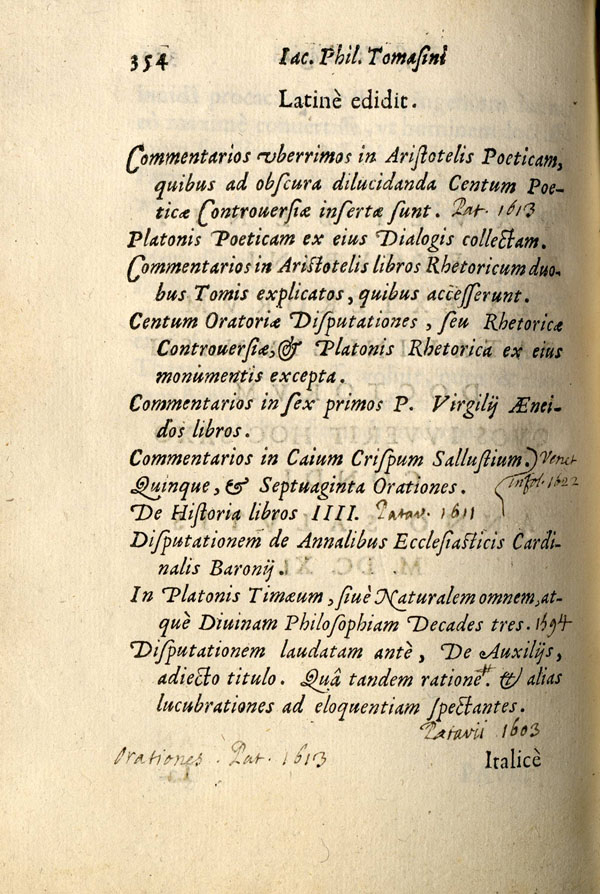 354 Iac. Phil. Tomasini
Latinè edidit.
Commentarios vberrimos in Aristotelis Poeticam,
quibus ad obscura dilucidanda Centum Poe-
ticæ Controuersiæ insertæ sunt. Pat. 1613
Platonis Poeticam ex eius Dialogis collectam.
Commentarios in Aristotelis libros Rhetoricum duo-
bus Tomis explicatos, quibus accesserunt.
Centum Oratoriæ Disputationes, seu Rhetoricæ
Controuersiæ, & Platonis Rhetorica ex eius
monumentis excepta.
Commentarios in sex primos P. Virgilij Ænei-
dos libros.
Commentarios in Caium Crispum Sallustium. Venet
Quinque, & Septuaginta Orationes. Infol. 1622
De Historia libros IIII. Patav. 1611
Disputationem de Annalibus Ecclesiasticis Cardi-
nalis Baronij.
In Platonis Timæum, siuè Naturalem omnem, at-
què Diuinam Philosophiam Decades tres. 1594
Disputationem laudatam antè, De Auxilijs,
adiecto titulo. Quâ tandem ratione #. & alias
lucubrationes ad eloquentiam spectantes.
Patavii 1603
Orationes. Pat. 1613
Italicè